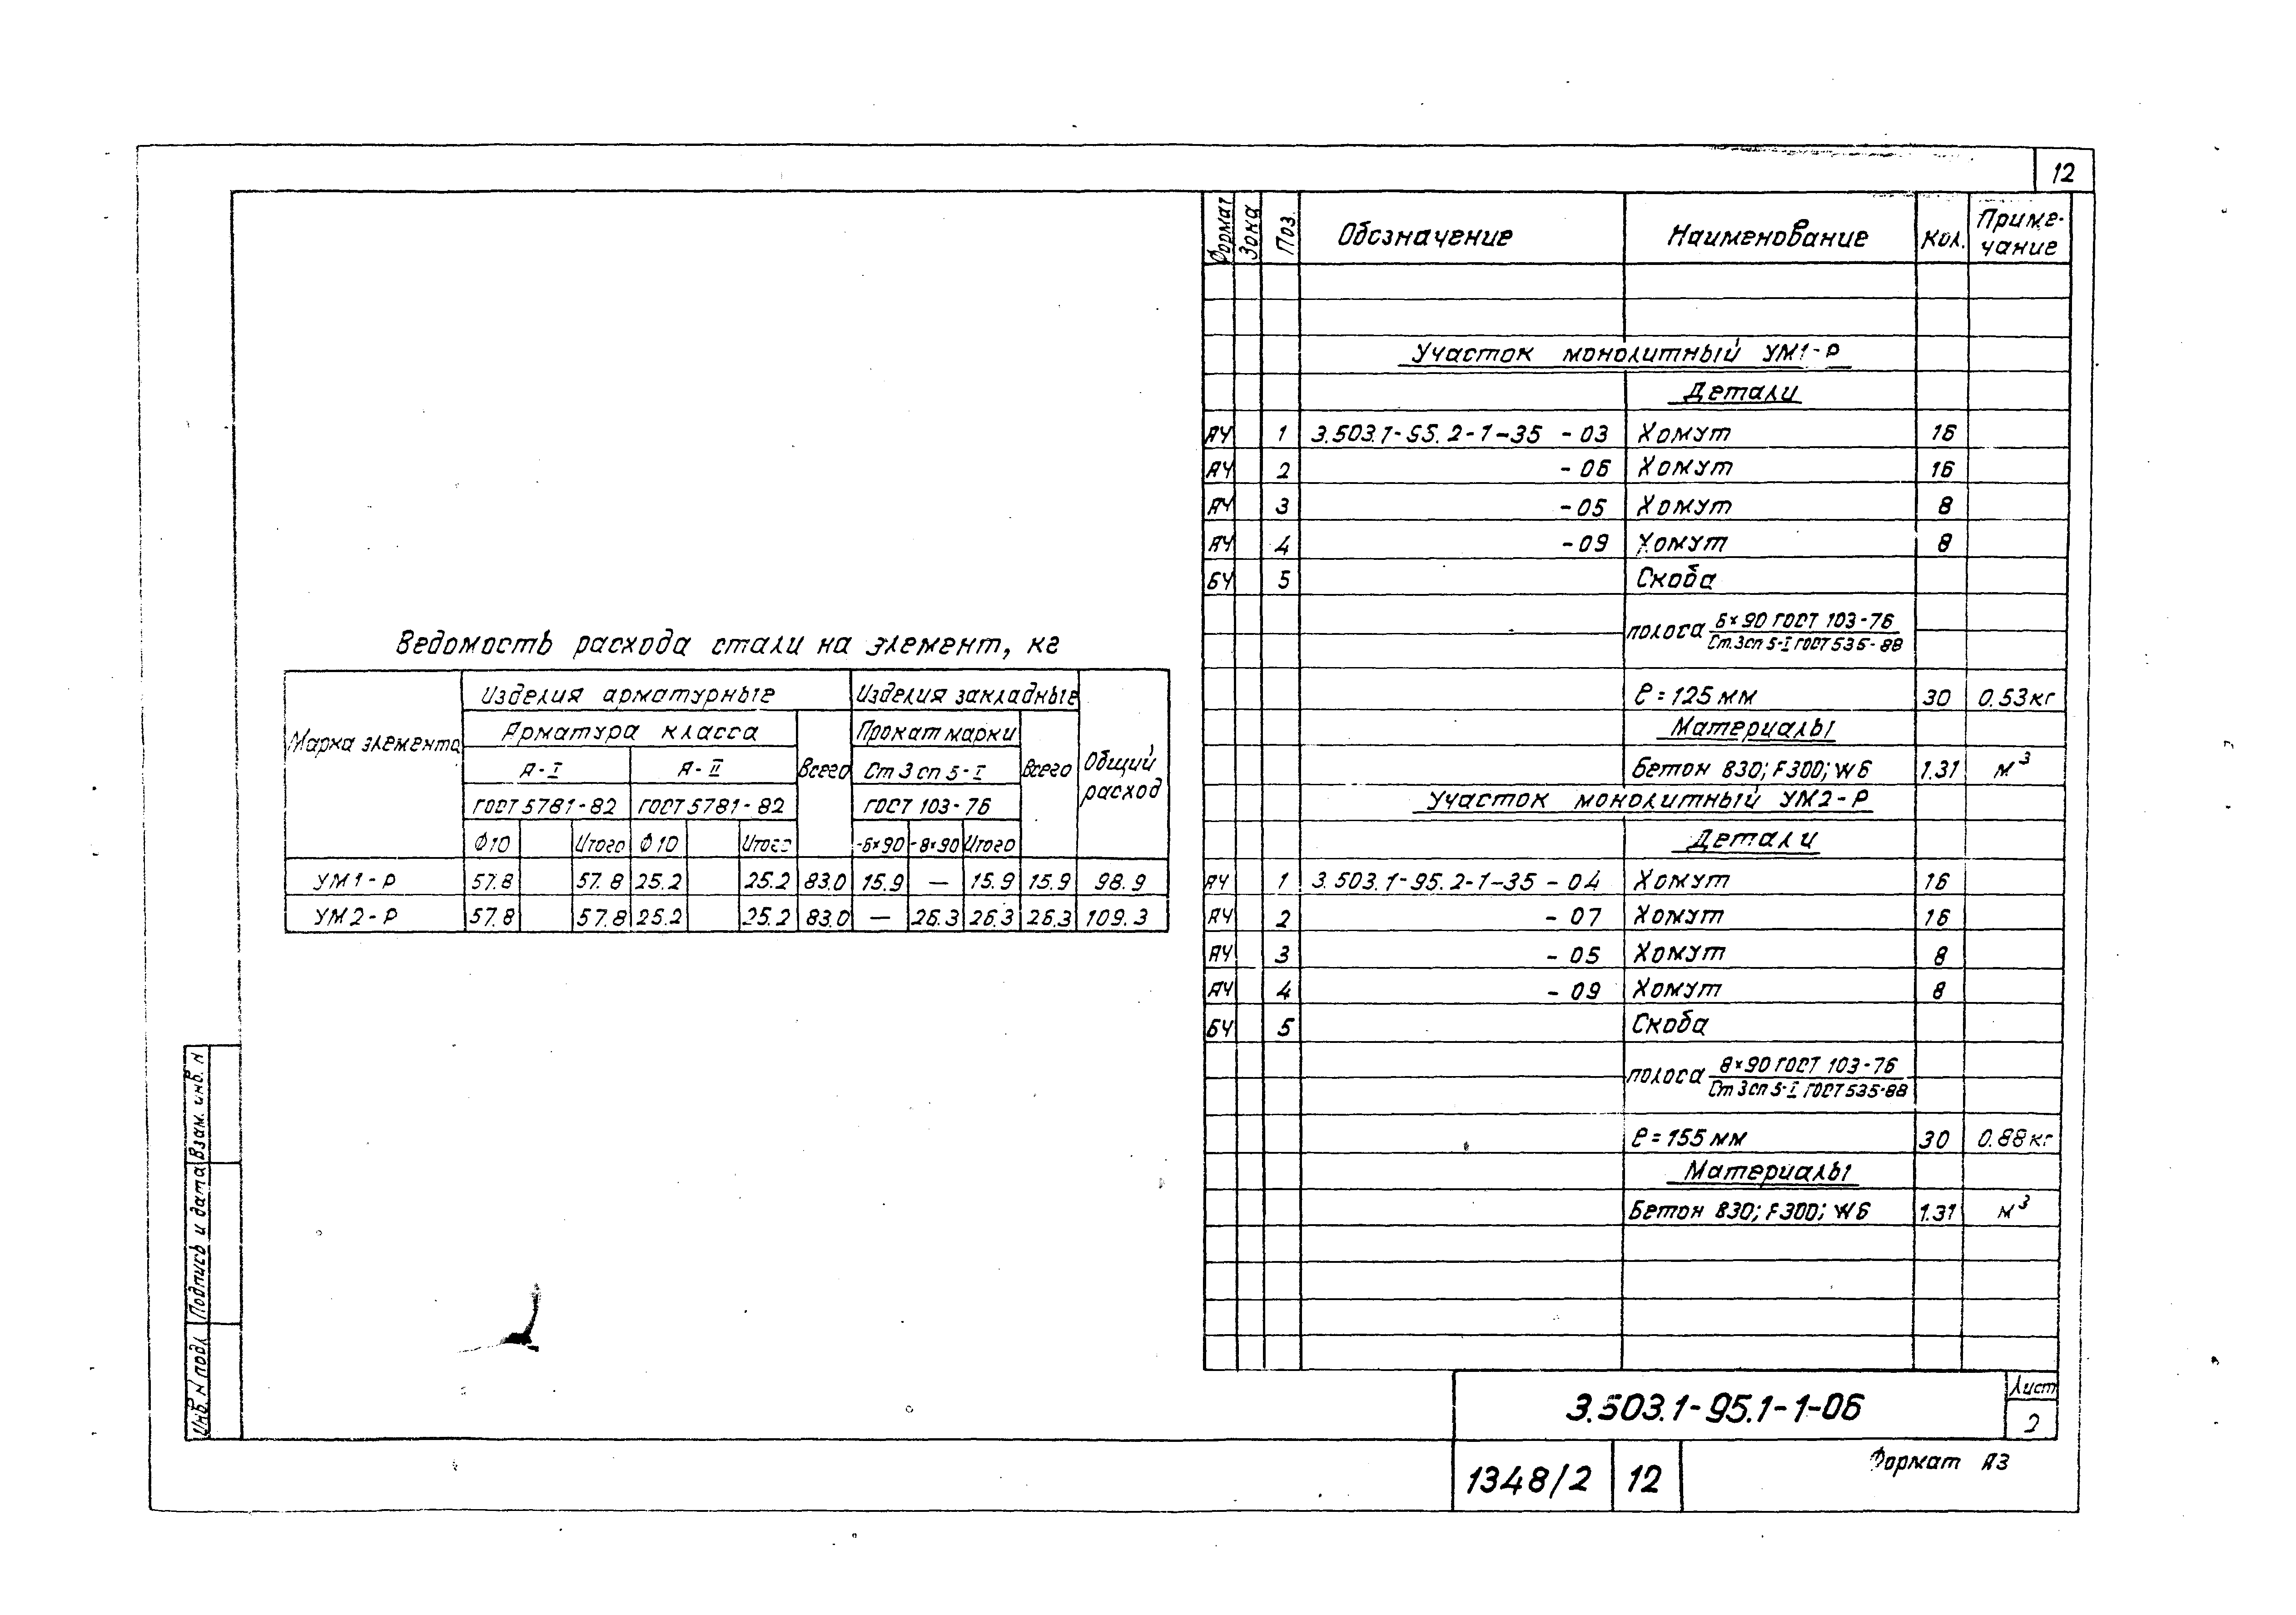 12
Формат Зона Поз. Обозначение Наименование Кол. Приме-
чание
Участок монолитный УМ1-Р
Детали
А4 1 3.503.1-95.2-1-35 -03 Хомут 16
А4 2 -06 Хомут 16
А4 3 -05 Хомут 8
А4 4 -09 Хомут 8
БЧ 5 Скоба
полоса 6×90 ГОСТ 103-76
Ст.3сп5-I ГОСТ 535-88
ℓ=125мм 30 0.53кг
Материалы
Бетон В30; F300; W6 1.31 м³
Участок монолитный УМ2-Р
Детали
А4 1 3.503.1-95.2-1-35 -04 Хомут 16
А4 2 -07 Хомут 16
А4 3 -05 Хомут 8
А4 4 -09 Хомут 8
БЧ 5 Скоба
полоса 8×90 ГОСТ 103-76
Ст3сп5-I ГОСТ 535-88
ℓ=155мм 30 0.88кг
Материалы
Бетон В30; F300; W6 1.31 м³
Ведомость расхода стали на элемент, кг
Марка элемента Изделия арматурные Изделия закладные Общий расход
Арматура класса Всего Прокат марки Всего
А-I А-II Ст3сп5-I
ГОСТ 5781-82 ГОСТ 5781-82 ГОСТ 103-76
Ф10 Итого Ф10 Итого -6×90 -8×90 Итого
УМ1-Р 57.8 57.8 25.2 25.2 83.0 15.9 — 15.9 15.9 98.9
УМ2-Р 57.8 57.8 25.2 25.2 83.0 — 26.3 26.3 26.3 109.3
Взам. инв. N
Подпись и дата
Инв. N подл.
3.503.1-95.1-1-06
Лист
2
1348/2 12
Формат А3